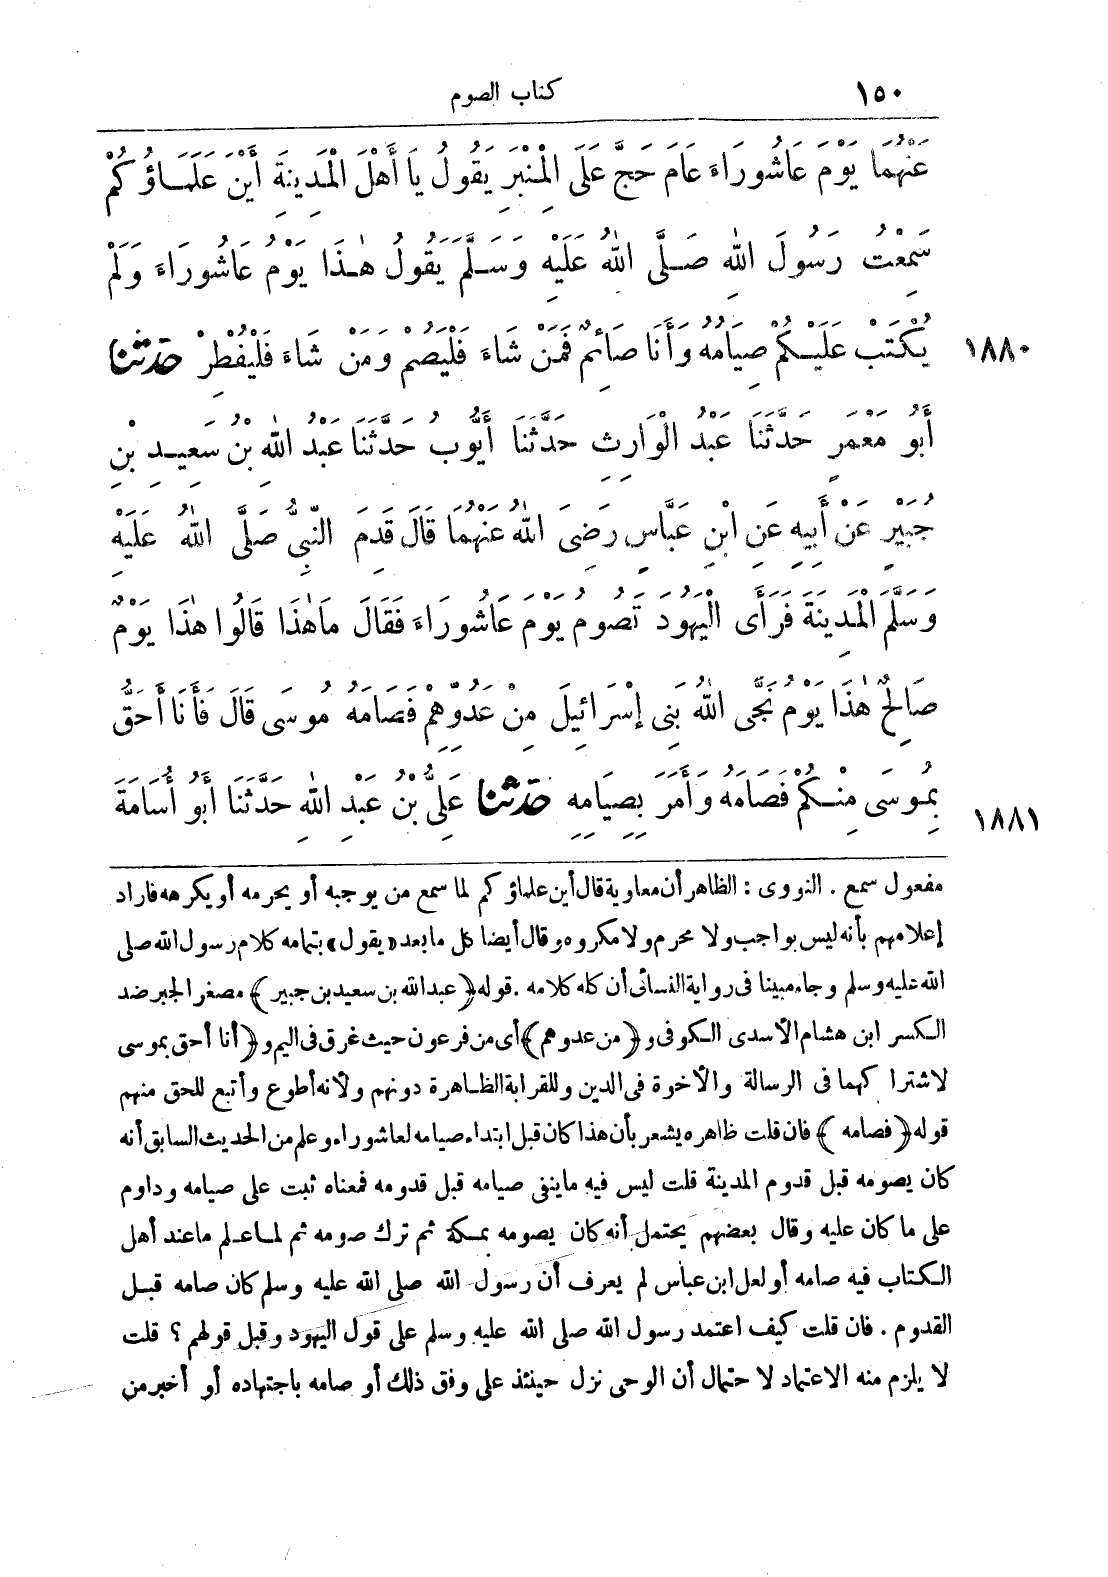 ١٥٠ كتاب الصوم
عَنْهُمَا يَوْمَ عَاشُورَاءَ عَامَ حَجَّ عَلَى الْمِنْبَرِ يَقُولُ يَا أَهْلَ الْمَدِينَةِ أَيْنَ عُلَمَاؤُكُمْ
سَمِعْتُ رَسُولَ اللهِ صَلَّى اللهُ عَلَيْهِ وَسَلَّمَ يَقُولُ هٰذَا يَوْمُ عَاشُورَاءَ وَلَمْ
يُكْتَبْ عَلَيْكُمْ صِيَامُهُ وَأَنَا صَائِمٌ فَمَنْ شَاءَ فَلْيَصُمْ وَمَنْ شَاءَ فَلْيُفْطِرْ حَدَّثَنَا ١٨٨٠
أَبُو مَعْمَرٍ حَدَّثَنَا عَبْدُ الْوَارِثِ حَدَّثَنَا أَيُّوبُ حَدَّثَنَا عَبْدُ اللهِ بْنُ سَعِيدِ بْنِ
جُبَيْرٍ عَنْ أَبِيهِ عَنِ ابْنِ عَبَّاسٍ رَضِىَ اللهُ عَنْهُمَا قَالَ قَدِمَ النَّبِىُّ صَلَّى اللهُ عَلَيْهِ
وَسَلَّمَ الْمَدِينَةَ فَرَأَى الْيَهُودَ تَصُومُ يَوْمَ عَاشُورَاءَ فَقَالَ مَاهٰذَا قَالُوا هٰذَا يَوْمٌ
صَالِحٌ هٰذَا يَوْمُ نَجَّى اللهُ بَنِى إِسْرَائِيلَ مِنْ عَدُوِّهِمْ فَصَامَهُ مُوسَى قَالَ فَأَنَا أَحَقُّ
بِمُوسَى مِنْكُمْ فَصَامَهُ وَأَمَرَ بِصِيَامِهِ حَدَّثَنَا عَلِىُّ بْنُ عَبْدِ اللهِ حَدَّثَنَا أَبُو أُسَامَةَ ١٨٨١
مفعول سمع . النووى : الظاهر أن معاوية قال أين علماؤكم لما سمع من يوجبه أو يحرمه أو يكرهه فاراد
إعلامهم بأنه ليس بواجب ولا محرم ولا مكروه وقال أيضا كل ما بعد «يقول» بتمامه كلام رسول الله صلى
الله عليه وسلم وجاء مبينا فى رواية النسائى أن كله كلامه . قوله ﴿عبد الله بن سعيد بن جبير﴾ مصغر الجبر ضد
الكسر ابن هشام الأسدى الكوفى و ﴿من عدوهم﴾ أى من فرعون حيث غرق فى اليم و ﴿أنا أحق بموسى
لاشتراكهما فى الرسالة والأخوة فى الدين وللقرابة الظاهرة دونهم ولأنه أطوع وأتبع للحق منهم
قوله ﴿فصامه﴾ فان قلت ظاهره يشعر بأن هذا كان قبل ابتداء صيامه لعاشوراء وعلم من الحديث السابق أنه
كان يصومه قبل قدوم المدينة قلت ليس فيه ماينفى صيامه قبل قدومه فمعناه ثبت على صيامه وداوم
على ما كان عليه وقال بعضهم يحتمل أنه كان يصومه بمكة ثم ترك صومه ثم لما علم ماعند أهل
الكتاب فيه صامه أو لعل ابن عباس لم يعرف أن رسول الله صلى الله عليه وسلم كان صامه قبل
القدوم . فان قلت كيف اعتمد رسول الله صلى الله عليه وسلم على قول اليهود وقبل قولهم ؟ قلت
لا يلزم منه الاعتماد لاحتمال أن الوحى نزل حينئذ على وفق ذلك أو صامه باجتهاده أو أخبر من